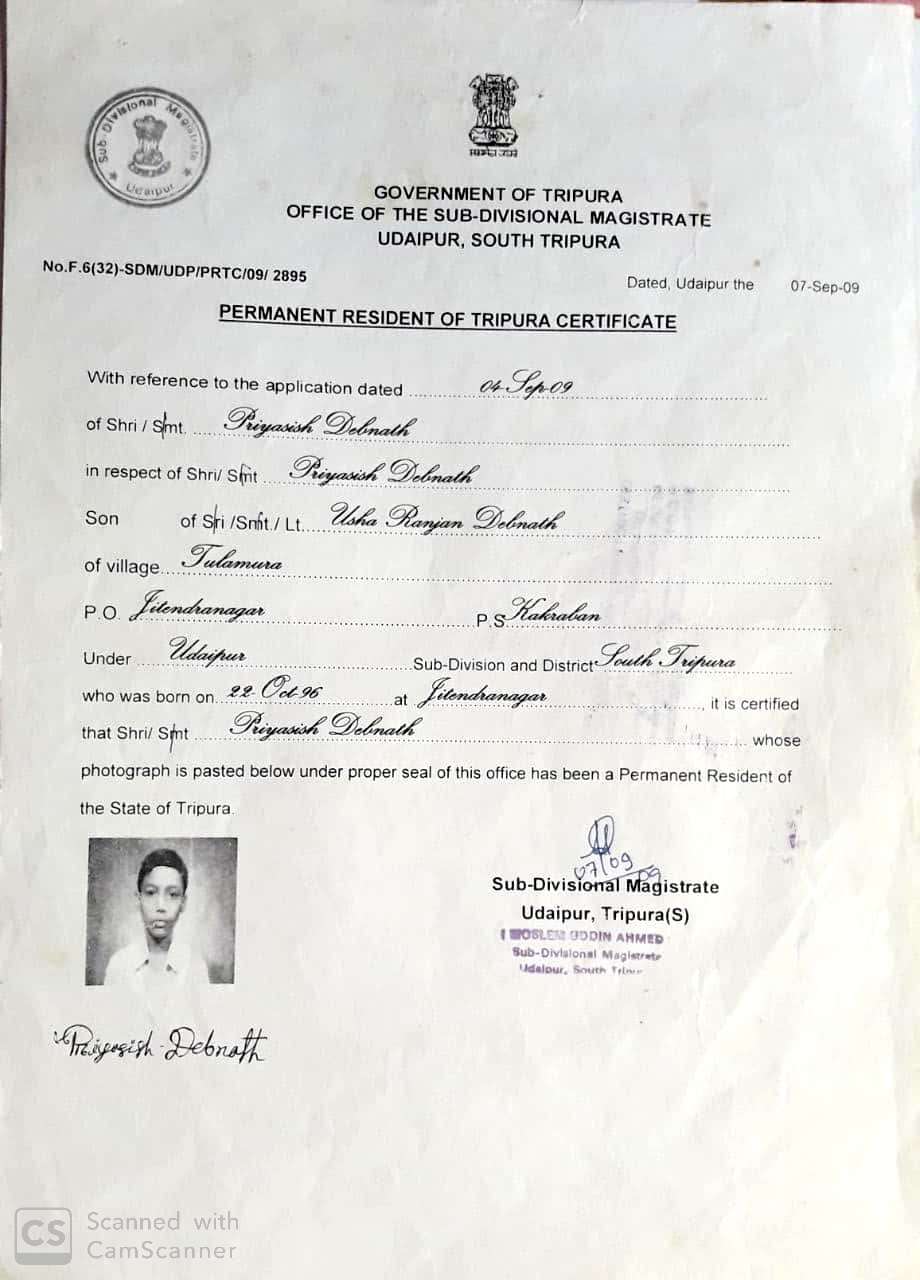 Sub-Divisional Magistrate
Udaipur
सत्यमेव जयते
GOVERNMENT OF TRIPURA
OFFICE OF THE SUB-DIVISIONAL MAGISTRATE
UDAIPUR, SOUTH TRIPURA
No.F.6(32)-SDM/UDP/PRTC/09/ 2895
Dated, Udaipur the 07-Sep-09
PERMANENT RESIDENT OF TRIPURA CERTIFICATE
With reference to the application dated 04-Sep-09
of Shri / Smt. Priyasish Debnath
in respect of Shri/ Smt Priyasish Debnath
Son of Sri /Smt./ Lt. Usha Ranjan Debnath
of village Tulamura
P.O. Jitendranagar P.S Kakraban
Under Udaipur Sub-Division and District South Tripura
who was born on 22-Oct-96 at Jitendranagar, it is certified
that Shri/ Smt Priyasish Debnath whose
photograph is pasted below under proper seal of this office has been a Permanent Resident of
the State of Tripura.
07/09
09
Sub-Divisional Magistrate
Udaipur, Tripura(S)
MOSLEM UDDIN AHMED
Sub-Divisional Magistrate
Udaipur, South Tripura
Priyasish Debnath
CS Scanned with
CamScanner